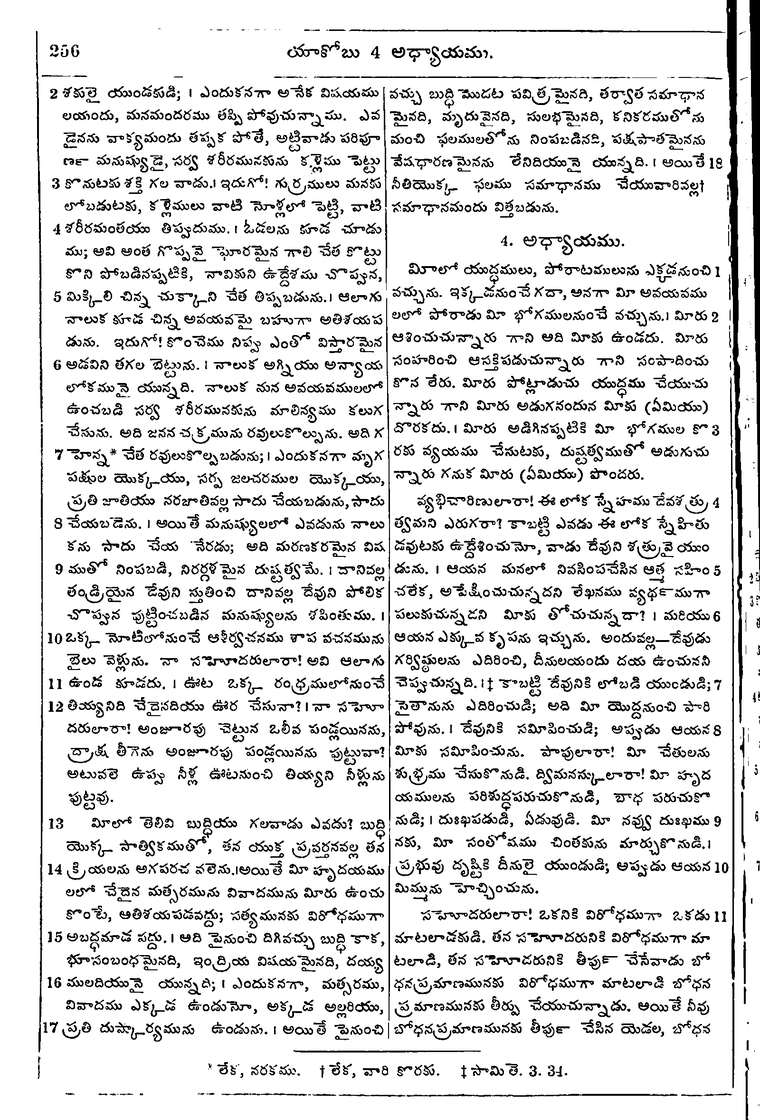 256
యాకోబు 4 అధ్యాయము.
2 శకులై యుండకుడి; । ఎందుకనగా అనేక విషయము
లయందు, మనమందరము తప్పి పోవుచున్నాము. ఎవ
డైనను వాక్యమందు తప్పక పోతే, అట్టివాడు పరిపూ
ర్ణ మనుష్యుడై, సర్వ శరీరమునకును కళ్లెము పెట్టు
3 కొనుటకు శక్తి గల వాడు. । ఇదుగో! గుర్రములు మనకు
లోబడుటకు, కళ్లెములు వాటి నోళ్లలో పెట్టి, వాటి
4 శరీరమంతయు తిప్పుదుము. । ఓడలను కూడ చూడు
ము; అవి అంత గొప్పవై ఘోరమైన గాలి చేత కొట్టు
కొని పోబడినప్పటికి, నావికుని ఉద్దేశము చొప్పున,
5 మిక్కిలి చిన్న చుక్కాని చేత తిప్పబడును. । ఆలాగు
నాలుక కూడ చిన్న అవయవమై బహుగా అతిశయప
డును. ఇదుగో! కొంచెము నిప్పు ఎంతో విస్తారమైన
6 అడవిని తగల బెట్టును. । నాలుక అగ్నియు అన్యాయ
లోకమునై యున్నది. నాలుక మన అవయవములలో
ఉంచబడి సర్వ శరీరమునకును మాలిన్యము కలుగ
చేసును. అది జనన చక్రమును రవులుకొల్పును. అది గ
7 హెన్న* చేత రవులుకొల్పబడును; । ఎందుకనగా మృగ
పక్షుల యొక్కయు, సర్ప జలచరముల యొక్కయు,
ప్రతి జాతియు నరజాతివల్ల సాదు చేయబడును, సాదు
8 చేయబడెను. । అయితే మనుష్యులలో ఎవడును నాలు
కను సాదు చేయ నేరడు; అది మరణకరమైన విష
9 ముతో నింపబడి, నిరర్గళమైన దుష్టత్వమే. । దానివల్ల
తండ్రియైన దేవుని స్తుతించి దానివల్ల దేవుని పోలిక
చొప్పున పుట్టించబడిన మనుష్యులను శపింతుము. ।
10 ఒక్క నోటిలోనుంచే ఆశీర్వచనము శాప వచనమును
బైలు వెళ్లును. నా సహోదరులారా! అవి ఆలాగు
11 ఉండ కూడదు. । ఊట ఒక్క రంధ్రములోనుంచే
12 తియ్యనిది చేదైనదియు ఊర చేసునా? । నా సహో
దరులారా! అంజూరపు చెట్టున ఒలీవ పండ్లయినను,
ద్రాక్ష తీగెను అంజూరపు పండ్లయినను పుట్టునా?
అటువలె ఉప్పు నీళ్ల ఊటనుంచి తియ్యని నీళ్లును
పుట్టవు.
13 మీలో తెలివి బుద్ధియు గలవాడు ఎవడు? బుద్ధి
యొక్క సాత్వికముతో, తన యుక్త ప్రవర్తనవల్ల తన
14 క్రియలను అగపరచ వలెను. । అయితే మీ హృదయము
లలో చేదైన మత్సరమును వివాదమును మీరు ఉంచు
కొంటే, అతిశయపడవద్దు; సత్యమునకు విరోధముగా
15 అబద్ధమాడ వద్దు. । ఆది పైనుంచి దిగివచ్చు బుద్ధి కాక,
భూసంబంధమైనది, ఇంద్రియ విషయమైనది, దయ్య
16 ములదియునై యున్నది; । ఎందుకనగా, మత్సరము,
వివాదము ఎక్కడ ఉండునో, అక్కడ అల్లరియు,
17 ప్రతి దుష్కార్యమును ఉండును. । అయితే పైనుంచి
వచ్చు బుద్ధి మొదట పవిత్రమైనది, తర్వాత సమాధాన
మైనది, మృదువైనది, సులభమైనది, కనికరముతోను
మంచి ఫలములతోను నింపబడినది, పక్షపాతమైనను
వేషధారణమైనను లేనిదియునై యున్నది. । అయితే 18
నీతియొక్క ఫలము సమాధానము చేయువారివల్ల†
సమాధానమందు విత్తబడును.
4. అధ్యాయము.
మీలో యుద్ధములు, పోరాటములును ఎక్కడనుంచి 1
వచ్చును. ఇక్కడనుంచే గదా, అనగా మీ అవయవము
లలో పోరాడు మీ భోగములనుంచే వచ్చును. । మీరు 2
ఆశించుచున్నారు గాని అది మీకు ఉండదు. మీరు
సంహరించి ఆసక్తిపడుచున్నారు గాని సంపాదించు
కొన లేరు. మీరు పోట్లాడుచు యుద్ధము చేయుచు
న్నారు గాని మీరు అడుగనందున మీకు (ఏమియు)
దొరకదు. । మీరు అడిగినప్పటికి మీ భోగముల కొ 3
రకు వ్యయము చేసుటకు, దుష్టత్వముతో అడుగుచు
న్నారు గనుక మీరు (ఏమియు) పొందరు.
వ్యభిచారిణులారా! ఈ లోక స్నేహము దేవశత్రు 4
త్వమని ఎరుగరా? కాబట్టి ఎవడు ఈ లోక స్నేహితు
డవుటకు ఉద్దేశించునో, వాడు దేవుని శత్రువై యుం
డును. । ఆయన మనలో నివసింపచేసిన ఆత్మ సహిం 5
చలేక, అపేక్షించుచున్నదని లేఖనము వ్యర్థముగా
పలుకుచున్నదని మీకు తోచుచున్నదా? । మరియు 6
ఆయన ఎక్కువ కృపను ఇచ్చును. అందువల్ల—దేవుడు
గర్విష్ఠులను ఎదిరించి, దీనులయందు దయ ఉంచునని
చెప్పుచున్నది. । ‡ కాబట్టి దేవునికి లోబడి యుండుడి; 7
సైతానును ఎదిరించుడి; అది మీ యొద్దనుంచి పారి
పోవును. । దేవునికి సమీపించుడి; అప్పుడు ఆయన 8
మీకు సమీపించును. పాపులారా! మీ చేతులను
శుభ్రము చేసుకొనుడి. ద్విమనస్కులారా! మీ హృద
యములను పరిశుద్ధపరుచుకొనుడి, బాధ పరుచుకొ
నుడి; । దుఃఖపడుడి, ఏడువుడి. మీ నవ్వు దుఃఖము 9
నకు, మీ సంతోషము చింతకును మార్చుకొనుడి. ।
ప్రభువు దృష్టికి దీనులై యుండుడి; అప్పుడు ఆయన 10
మిమ్మును హెచ్చించును.
సహోదరులారా! ఒకనికి విరోధముగా ఒకడు 11
మాటలాడకుడి. తన సహోదరునికి విరోధముగా మా
టలాడి, తన సహోదరునికి తీర్పు చేసేవాడు బో
ధనప్రమాణమునకు విరోధముగా మాటలాడి బోధన
ప్రమాణమునకు తీర్పు చేయుచున్నాడు. అయితే నీవు
బోధనప్రమాణమునకు తీర్పు చేసిన యెడల, బోధన
* లేక, నరకము. † లేక, వారి కొరకు. ‡ సామితె. 3. 34.